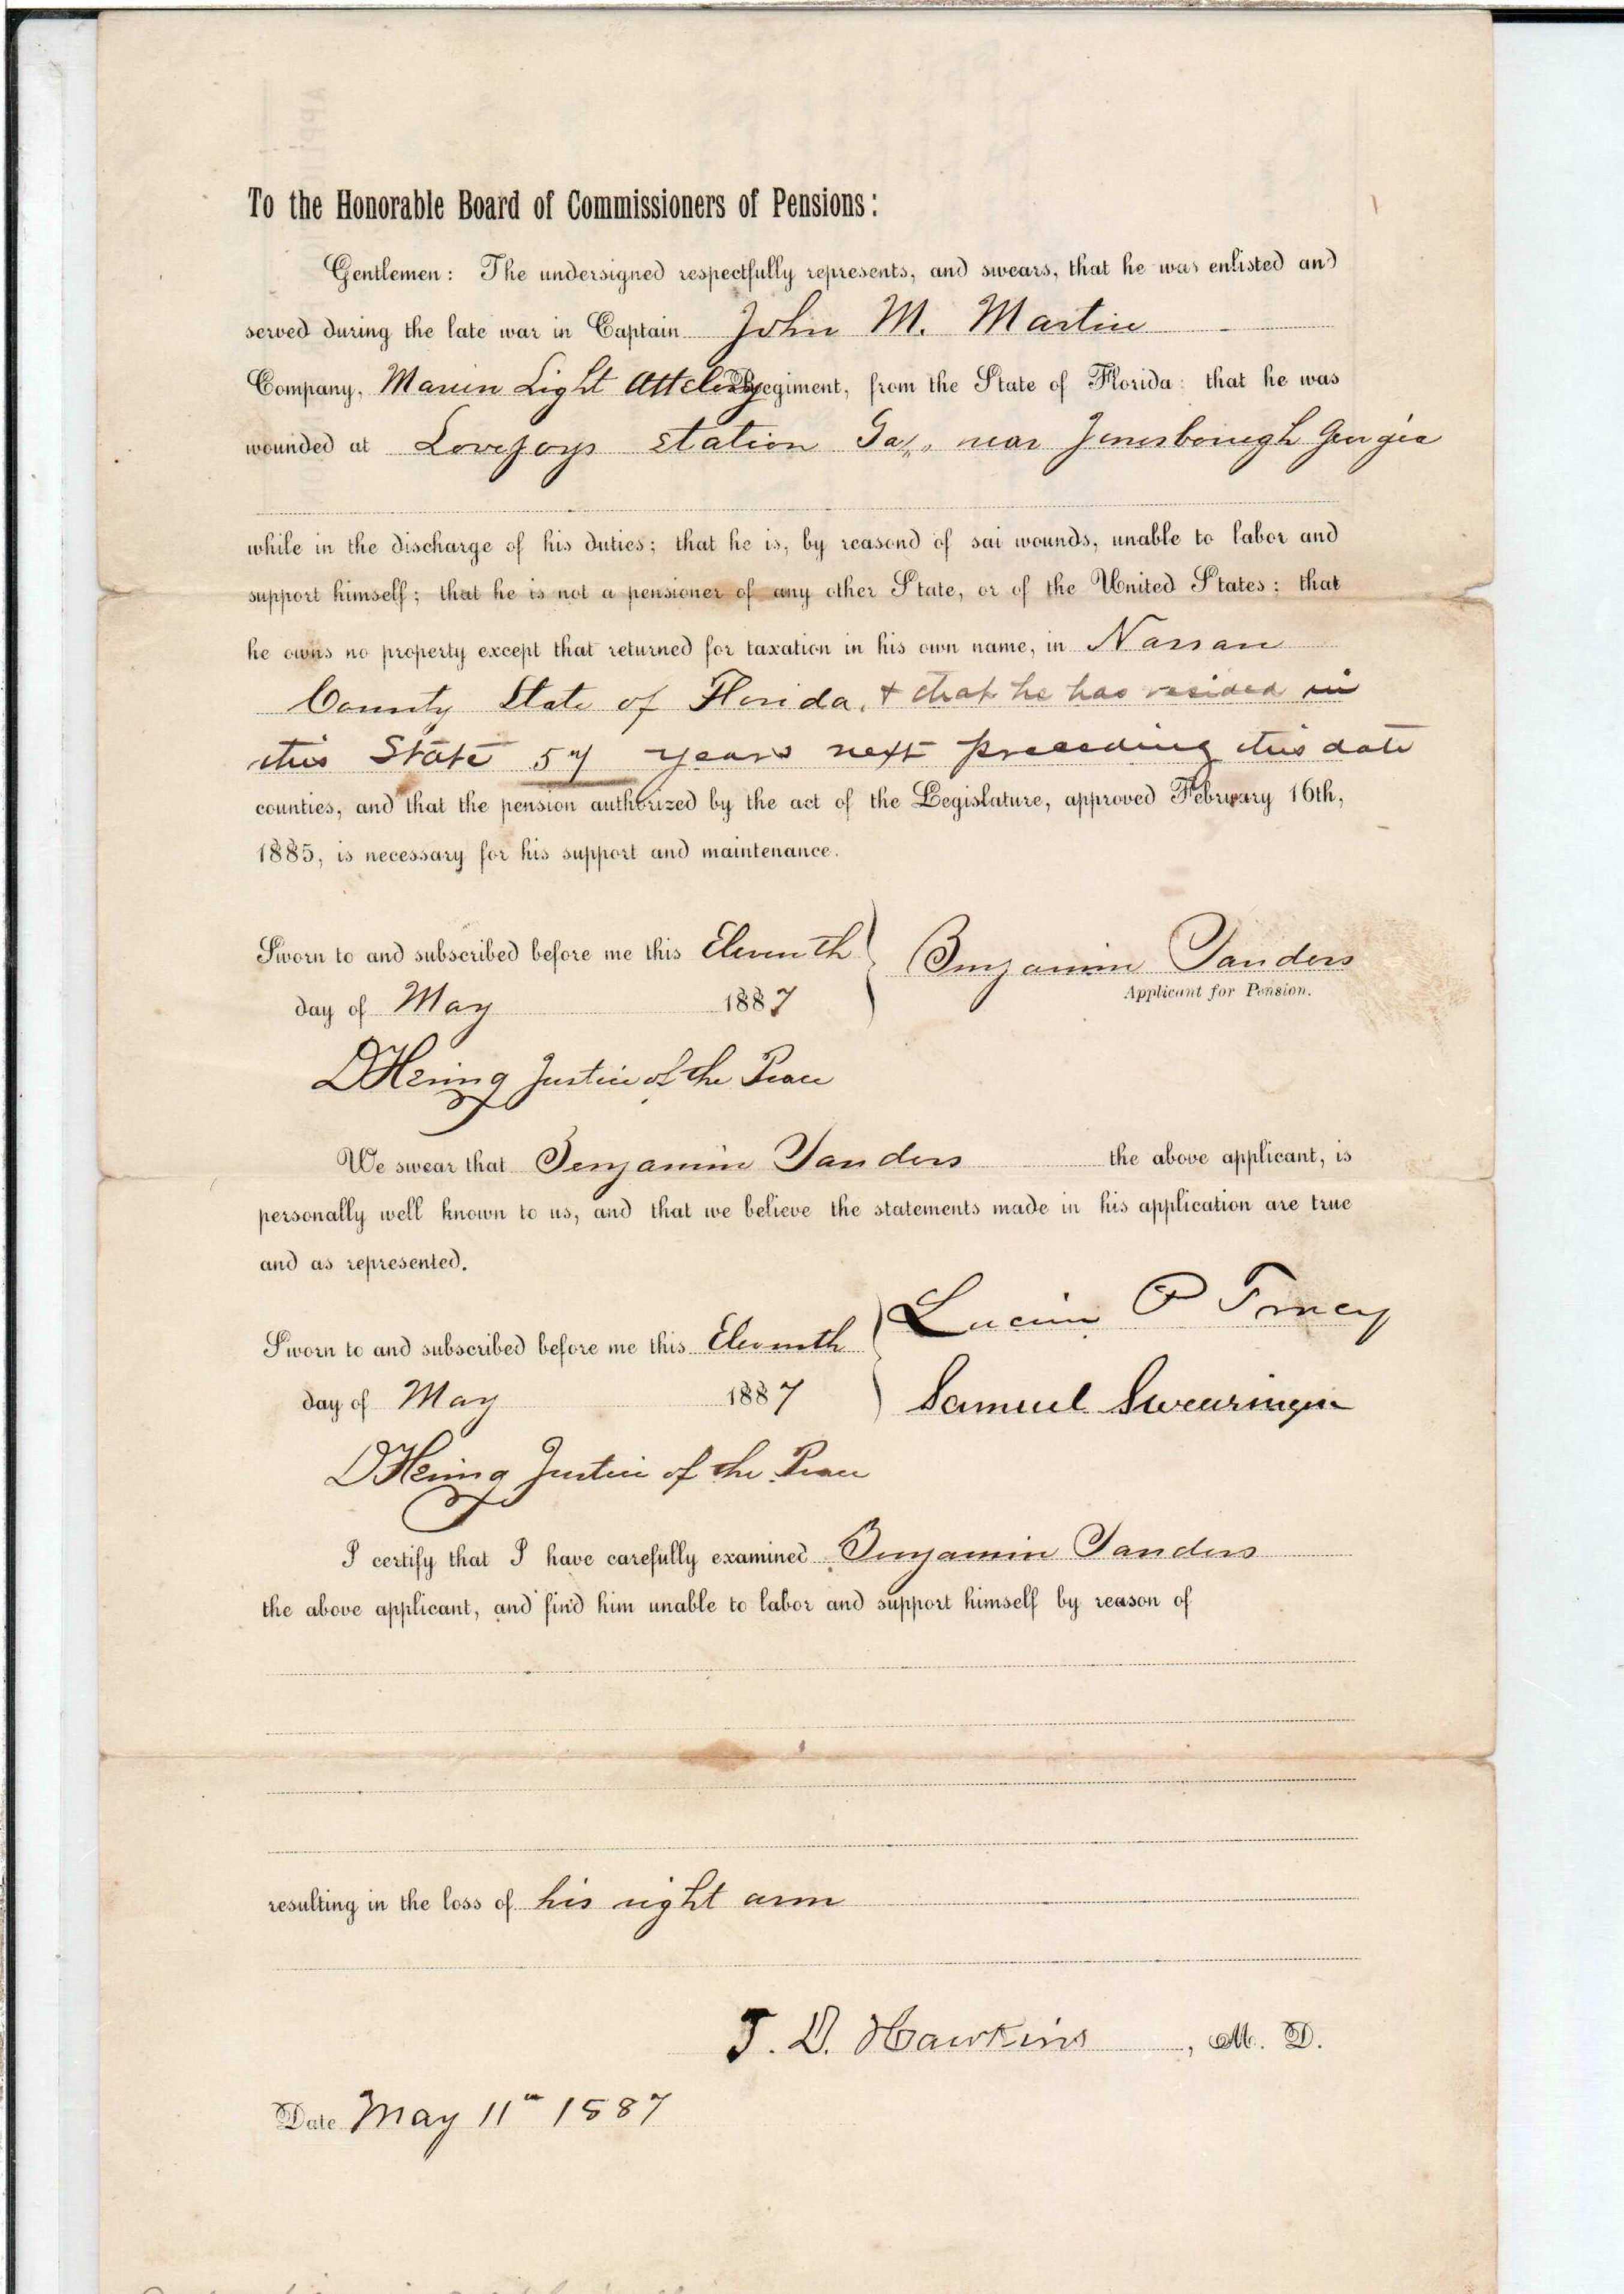 To the Honorable Board of Commissioners of Pensions:
Gentlemen: The undersigned respectfully represents, and swears, that he was enlisted and
served during the late war in Captain John M. Martin
Company, Light Regiment, from the State of Florida: that he was
wounded at Lovejoys station Ga, near Jonesborough Georgia
while in the discharge of his duties; that he is, by reasond of sai wounds, unable to labor and
support himself; that he is not a pensioner of any other State, or of the United States: that
he owns no property except that returned for taxation in his own name, in Nassau
County State of Florida, + that he has resided in
this State 57 years next preceeding this date
counties, and that the pension authorized by the act of the Legislature, approved February 16th,
1885, is necessary for his support and maintenance.
Sworn to and subscribed before me this Eleventh
Benjamin Sanders
Applicant for Pension.
day of May 1887
Justice of the Peace
We swear that Benjamin Sanders the above applicant, is
personally well known to us, and that we believe the statements made in his application are true
and as represented.
Sworn to and subscribed before me this Eleventh
day of May 1887
Samuel Swearingen
Justice of the Peace
I certify that I have carefully examined Benjamin Sanders
the above applicant, and find him unable to labor and support himself by reason of
resulting in the loss of his right arm
J. D. Hawkins, M. D.
Date May 11th 1887